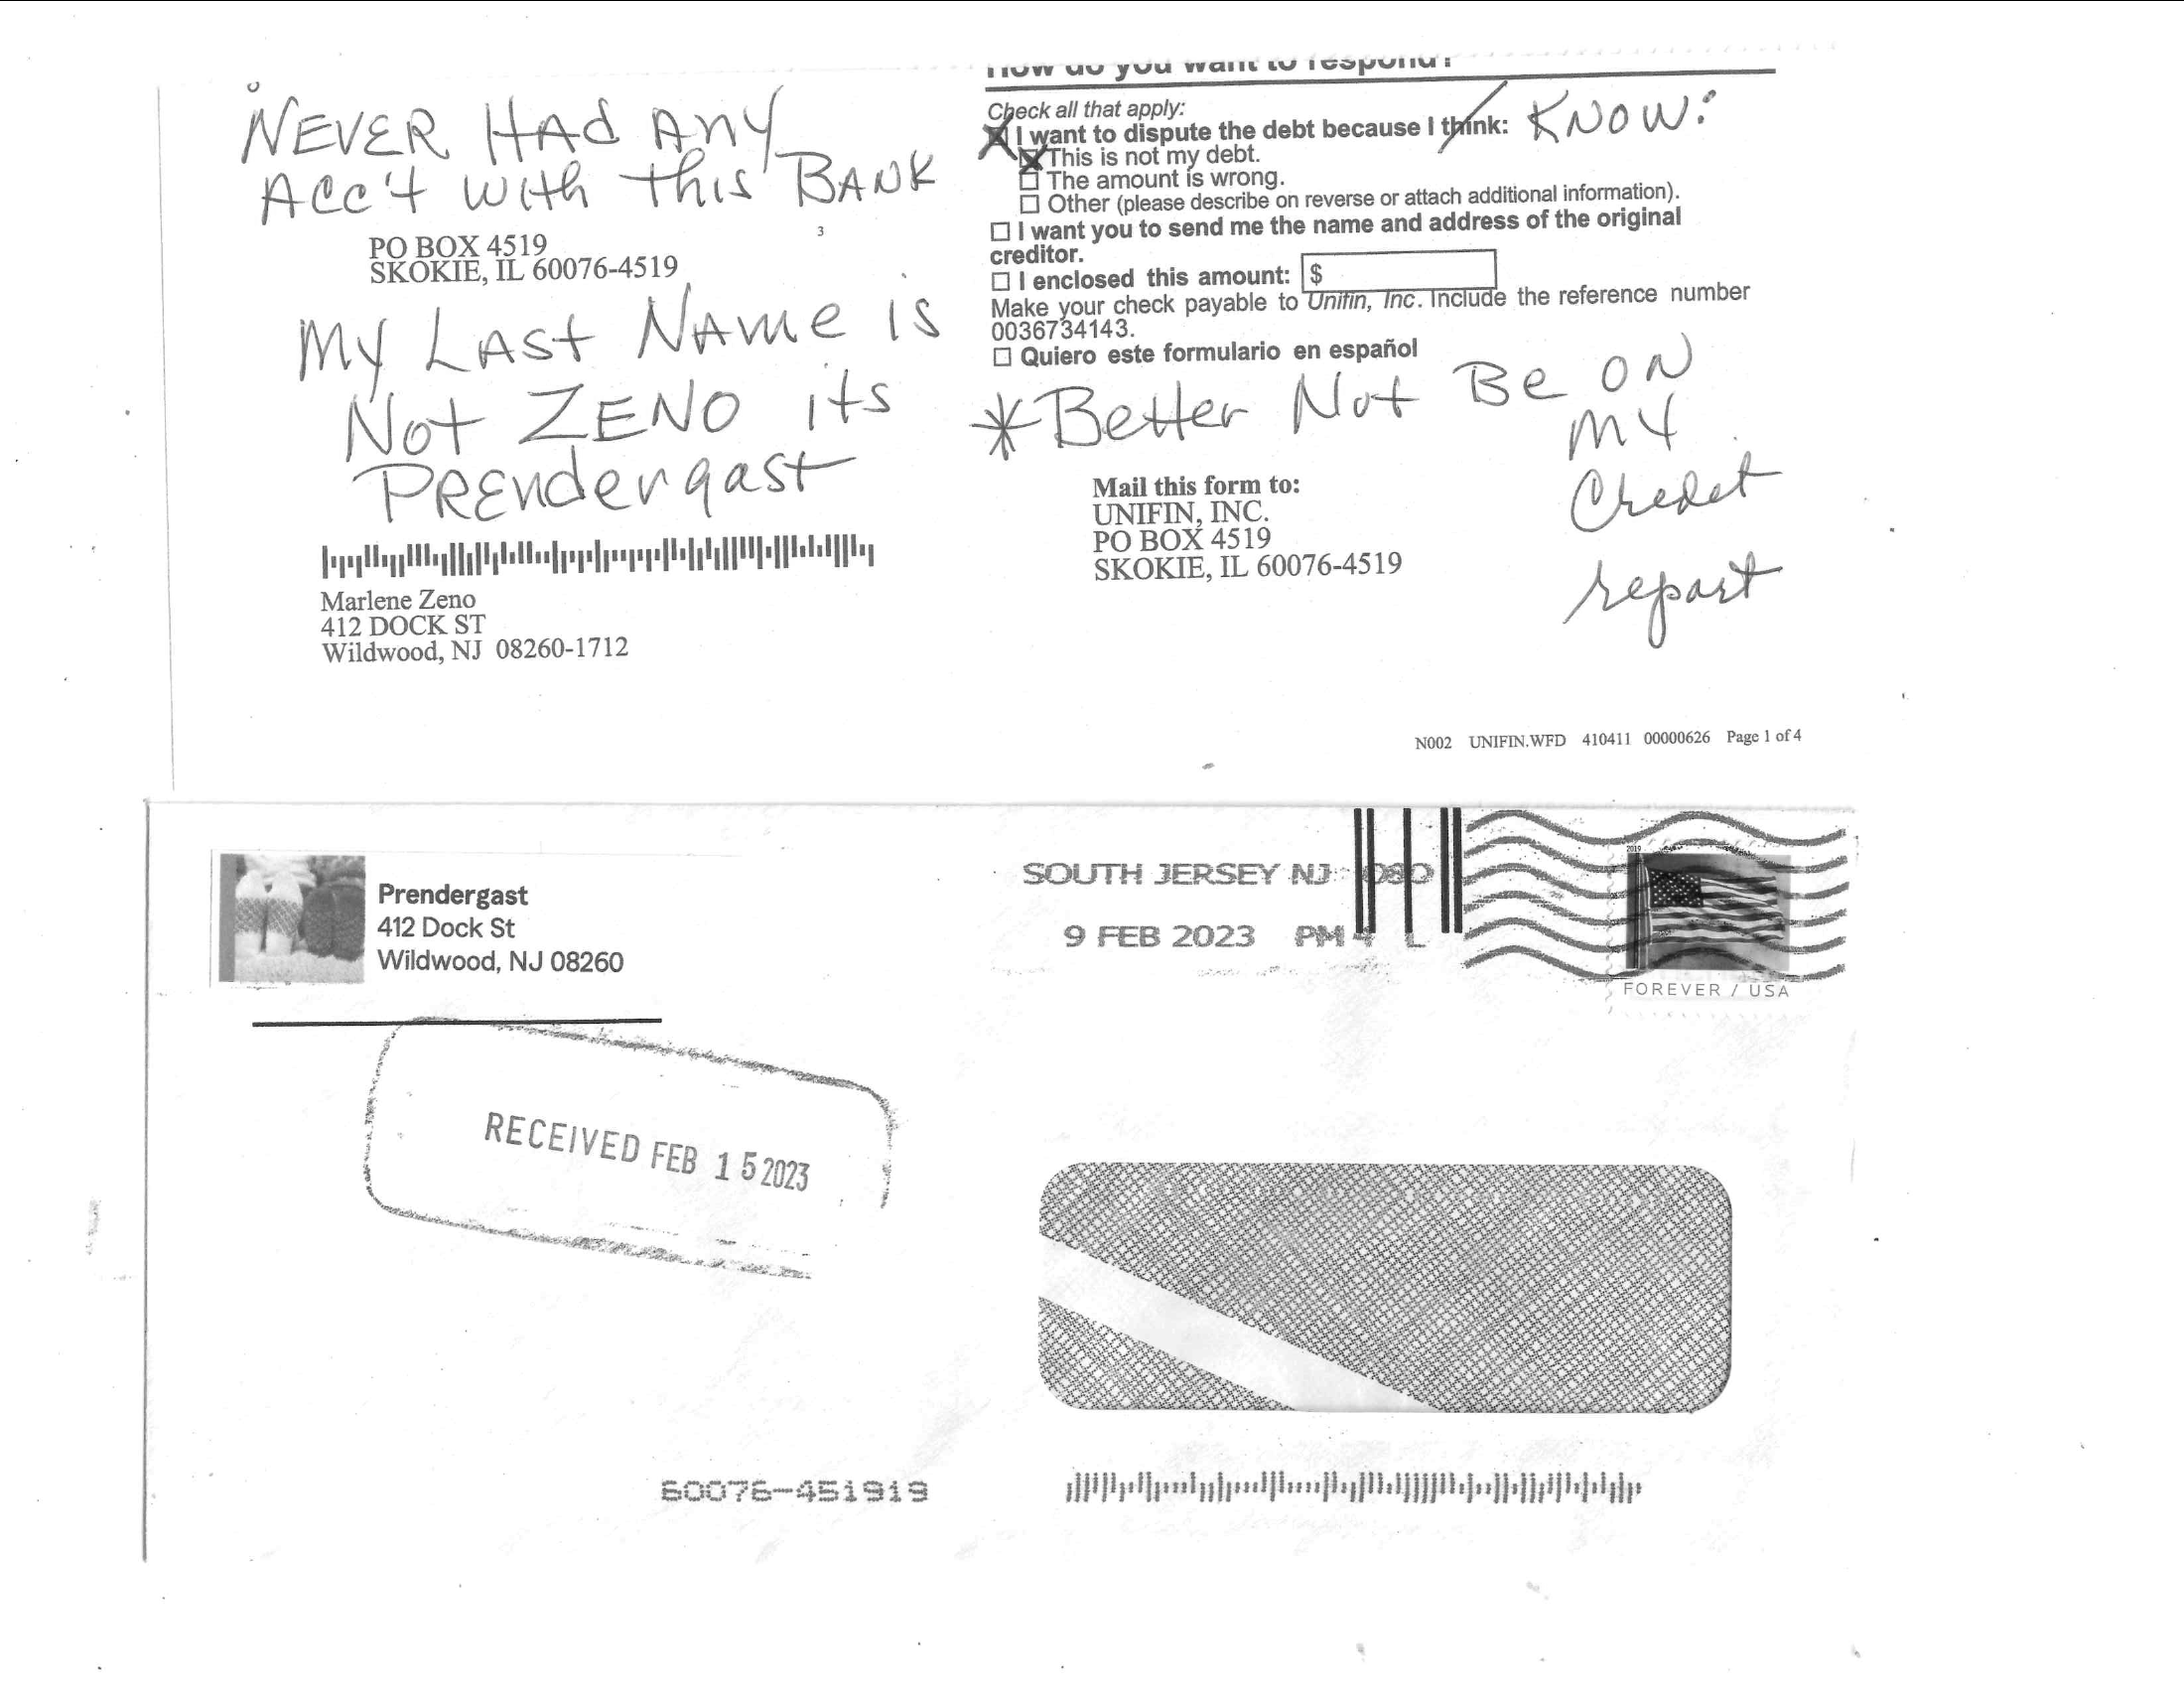 NEVER HAD ANY
ACC'T WITH this BANK
PO BOX 4519
SKOKIE, IL 60076-4519
3
MY LAST NAME is
Not ZENO its
PRENdergast
Marlene Zeno
412 DOCK ST
Wildwood, NJ 08260-1712
How do you want to respond?
Check all that apply:
I want to dispute the debt because I think: KNOW:
This is not my debt.
The amount is wrong.
Other (please describe on reverse or attach additional information).
I want you to send me the name and address of the original
creditor.
I enclosed this amount: $
Make your check payable to Unifin, Inc. Include the reference number
0036734143.
Quiero este formulario en español
*Better Not Be ON
MY
Credit
report
Mail this form to:
UNIFIN, INC.
PO BOX 4519
SKOKIE, IL 60076-4519
N002 UNIFIN.WFD 410411 00000626 Page 1 of 4
Prendergast
412 Dock St
Wildwood, NJ 08260
SOUTH JERSEY NJ 080
9 FEB 2023 PM 4 L
2019
FOREVER / USA
RECEIVED FEB 15 2023
60076-451919